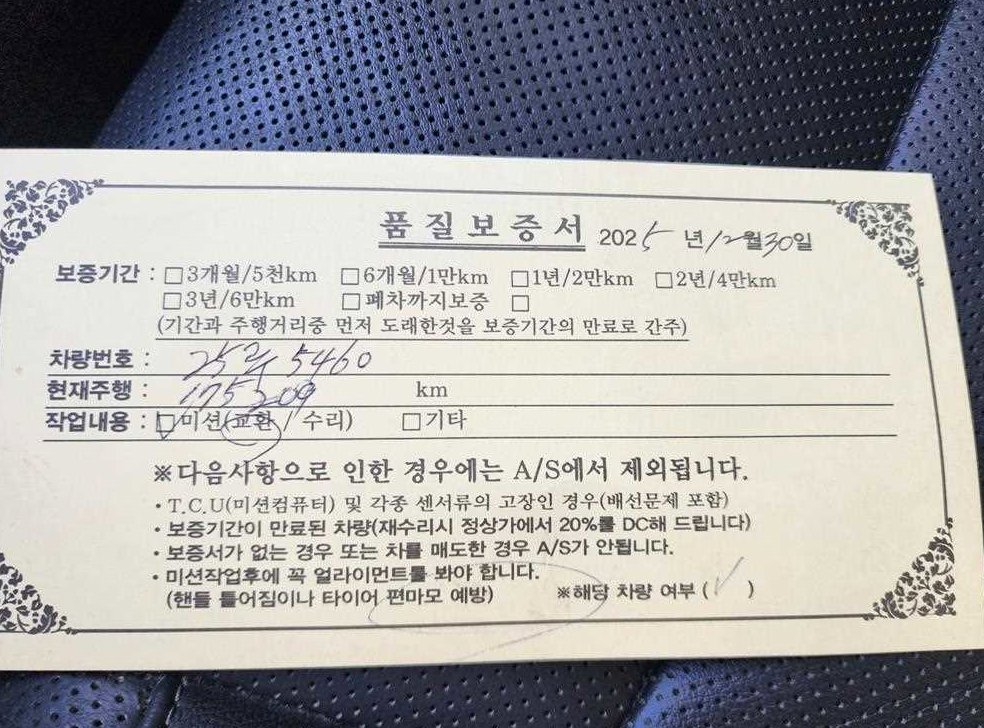 품질보증서 2025년 12월 30일
보증기간 : □3개월/5천km □6개월/1만km □1년/2만km □2년/4만km
□3년/6만km □폐차까지보증 □
(기간과 주행거리중 먼저 도래한것을 보증기간의 만료로 간주)
차량번호 : 25주 5460
현재주행 : 175209 km
작업내용 : ☑미션(교환 / 수리) □기타
※다음사항으로 인한 경우에는 A/S에서 제외됩니다.
· T.C.U(미션컴퓨터) 및 각종 센서류의 고장인 경우(배선문제 포함)
· 보증기간이 만료된 차량(재수리시 정상가에서 20%를 DC해 드립니다)
· 보증서가 없는 경우 또는 차를 매도한 경우 A/S가 안됩니다.
· 미션작업후에 꼭 얼라이먼트를 봐야 합니다.
(핸들 틀어짐이나 타이어 편마모 예방) ※해당 차량 여부 ( ✓ )